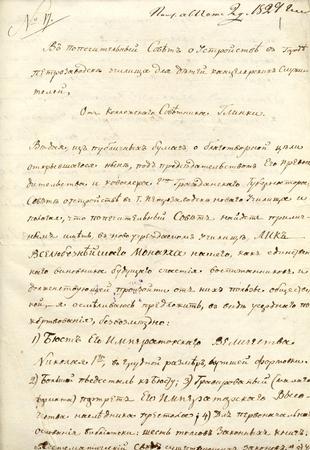 № 17.
Въ попечительный Совѣтъ о Устройствѣ въ Городѣ
Петрозаводскѣ училища для дѣтей канцелярскихъ Служи
телей,
Отъ Коллежскаго Совѣтника Глинки.
Видя, изъ публичныхъ бумагъ о благотворной цѣли
открывшагося нынѣ, подъ предсѣдательствомъ Его Превосхо
дительства и кавалера Гражданскаго Губернатора,
Совѣта о устройствѣ въ Г. Петрозаводскѣ новаго Училища и
полагая, что попечительный Совѣтъ найдетъ приличнымъ
имѣть, въ новоучреждаемомъ училищѣ, ЛИКЪ
Всемилостивѣйшаго Монарха нашего, какъ единствен
наго виновника будущаго счастія воспитанниковъ и
должествующей произойти отъ нихъ пользы обществен
ной, я осмѣливаюсь предложить, въ видѣ усерднаго по
жертвованія, безвозмездно:
1) Бюстъ Его Императорскаго Величества
Николая I, въ грудной размѣръ, лучшей формовки
2) Большой пьедесталъ къ бюсту; 3) Гравированный
портретъ Его Императорскаго Высо
чества наслѣдника престола; 4) Для первоначальнаго
основанія библіотеки: шесть томовъ законныхъ книгъ,